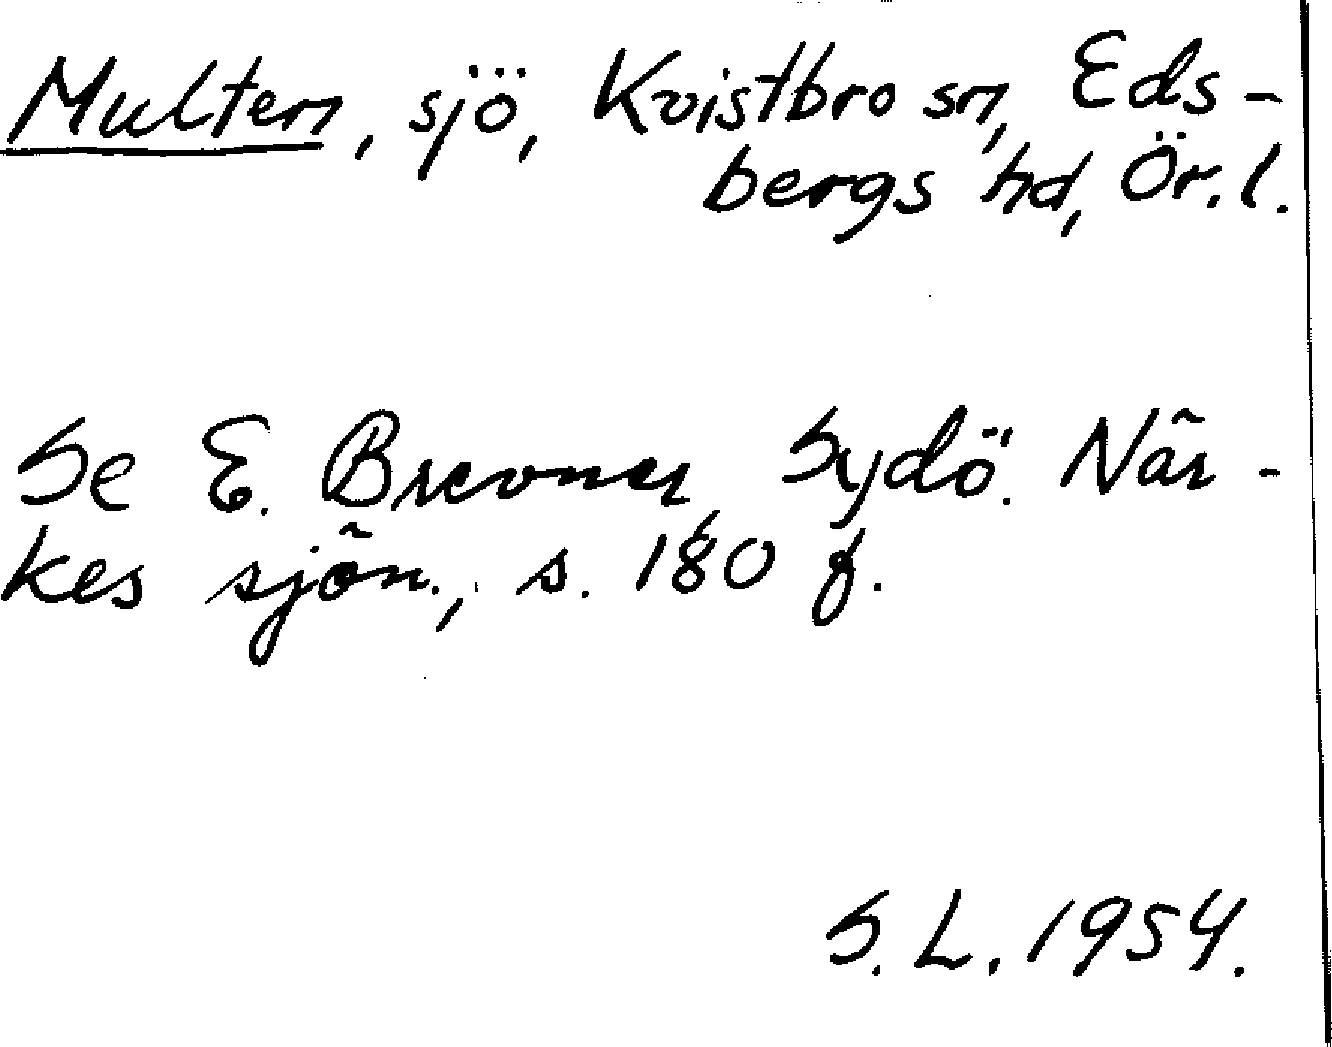 Multen, sjö, Kvistbro sn, Eds-
bergs hd, Ör. l.
Se E. Brevner, Sydö. När-
kes sjön., s. 180 f.
S. L. 1954.